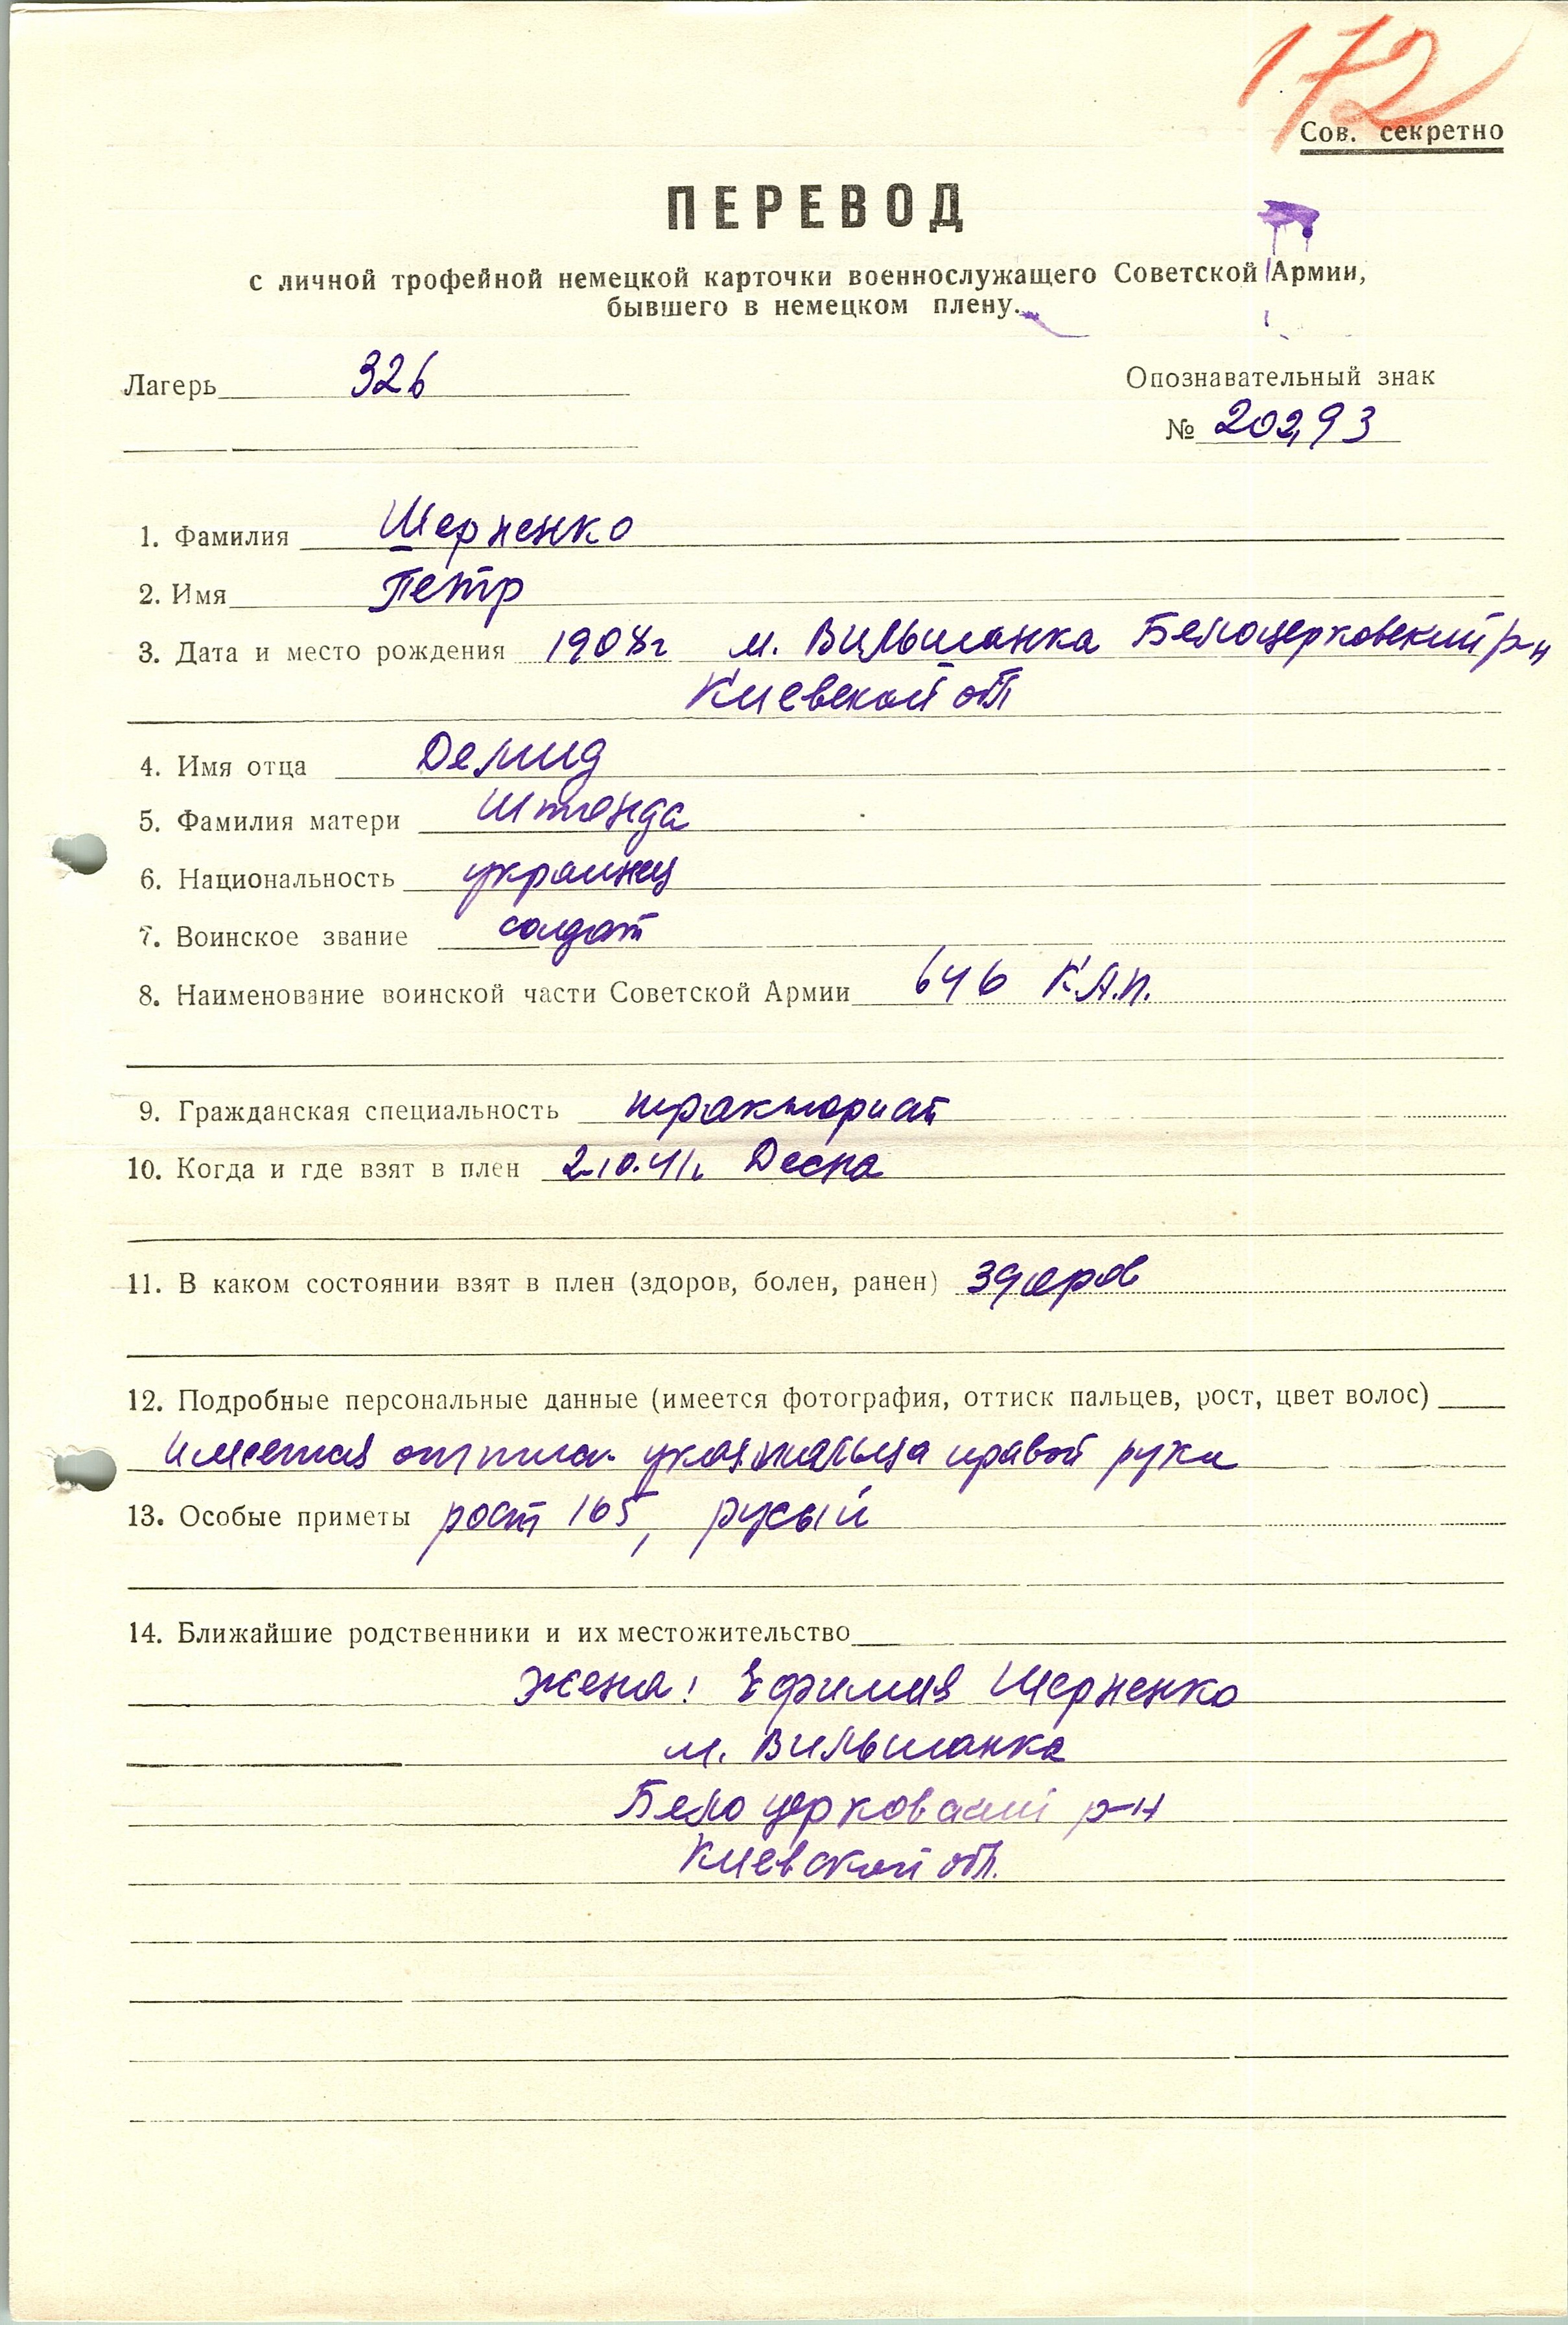 172
Сов. секретно
ПЕРЕВОД
с личной трофейной немецкой карточки военнослужащего Советской Армии,
бывшего в немецком плену.
Лагерь 326
Опознавательный знак
№ 20293
1. Фамилия Шерненко
2. Имя Петр
3. Дата и место рождения 1908г м. Вильшанка Белоцерковский р-н
Киевской обл
4. Имя отца Демид
5. Фамилия матери Штонда
6. Национальность украинец
7. Воинское звание солдат
8. Наименование воинской части Советской Армии 646 К.А.П.
9. Гражданская специальность тракторист
10. Когда и где взят в плен 2.10.41г. Десна
11. В каком состоянии взят в плен (здоров, болен, ранен) здоров
12. Подробные персональные данные (имеется фотография, оттиск пальцев, рост, цвет волос)
имеется оттиск указ. пальца правой руки
13. Особые приметы рост 165, русый
14. Ближайшие родственники и их местожительство
жена: Ефимия Шерненко
м. Вильшанка
Белоцерковский р-н
Киевской обл.